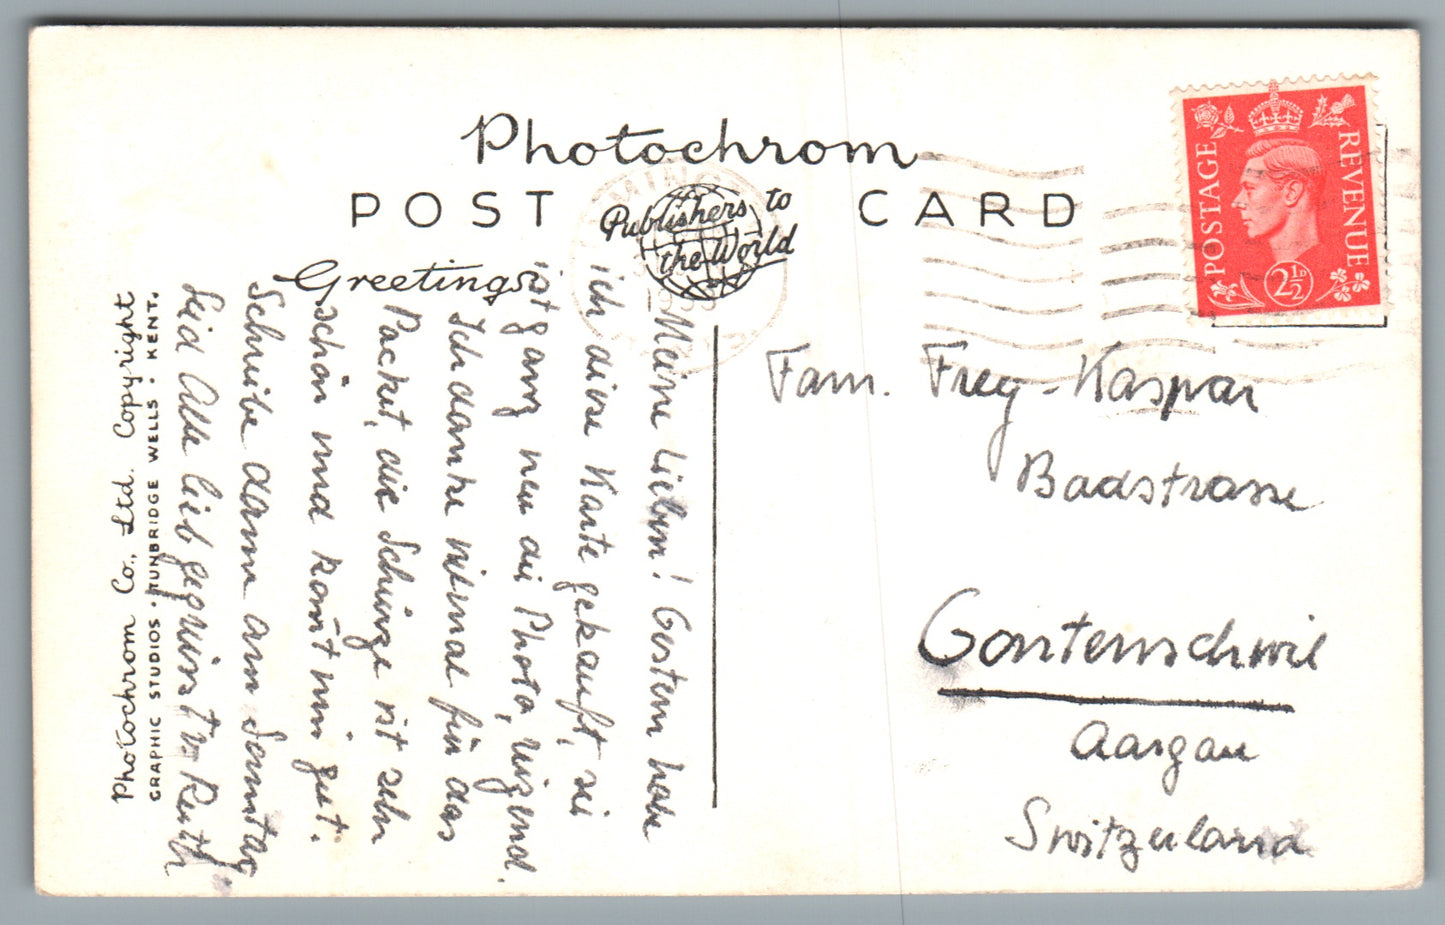 Photochrom
POST CARD
The Publishers to the World
Greetings
Photochrom Co., Ltd. Copyright
GRAPHIC STUDIOS · TUNBRIDGE WELLS · KENT.
POSTAGE
REVENUE
2½D
Meine Lieben! Gestern habe
ich diese Karte gekauft, sie
ist ganz neu die Photo, reizend.
Ich danke vielmal für das
Packet, die Schürze ist sehr
schön und kommt mir gut.
Schreibe dann am Sonntag
Seid Alle lieb gegrüsst v. Ruth
Fam. Frey-Kaspar
Badstrasse
Gontenschwil
Aargau
Switzerland